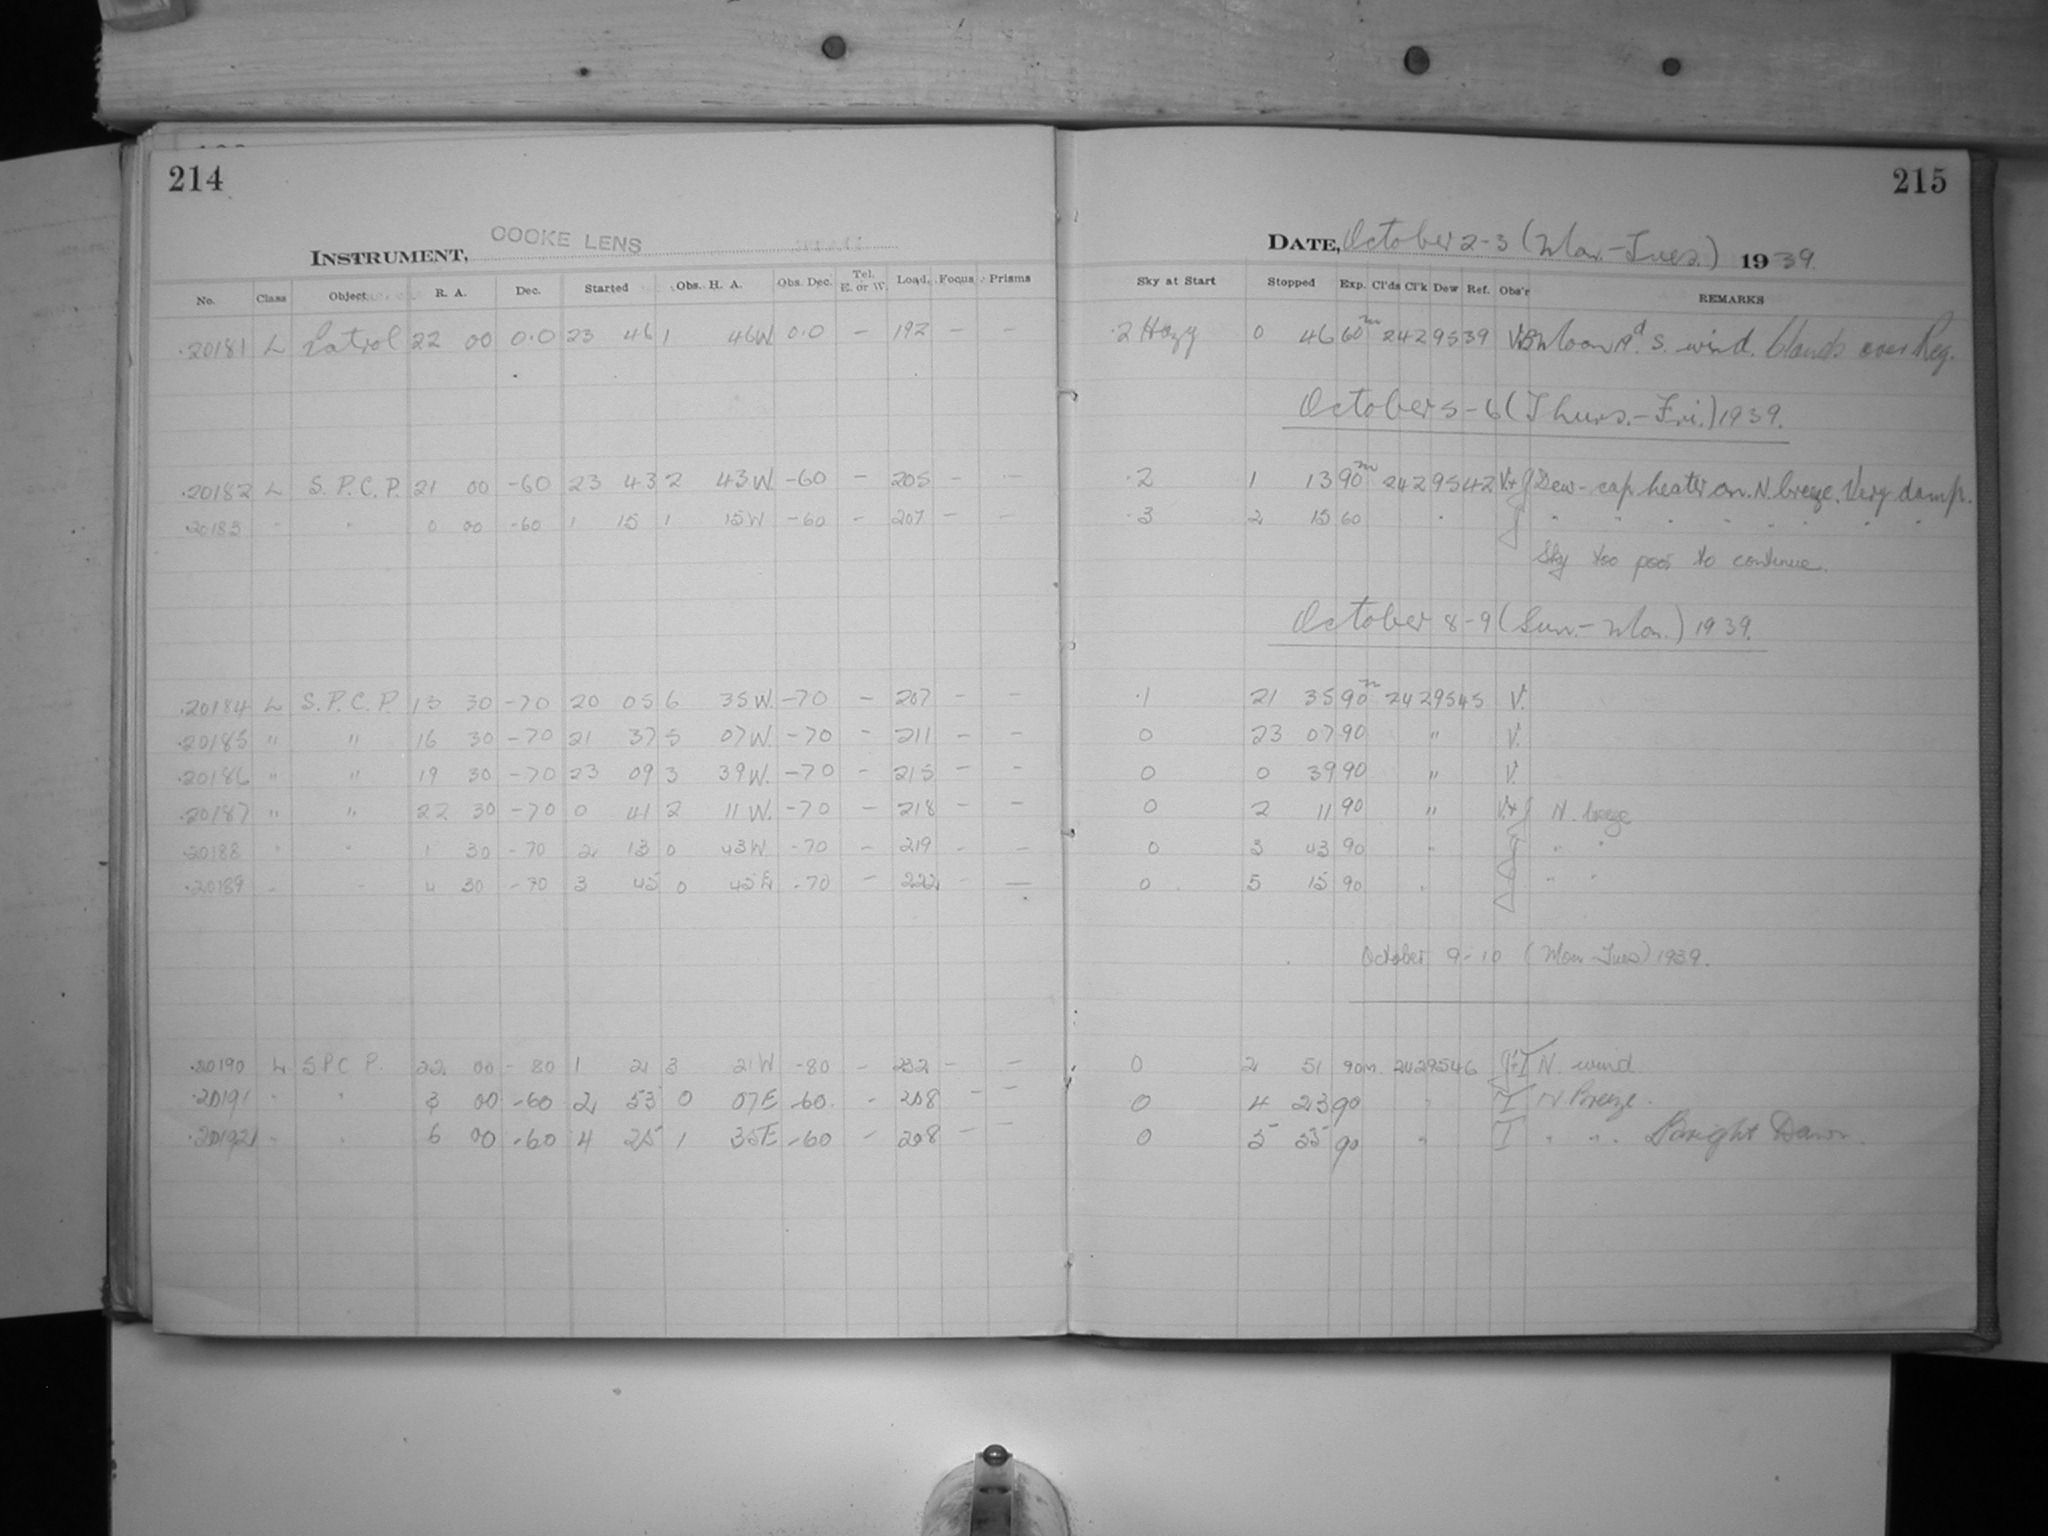 214
215
INSTRUMENT, COOKE LENS
DATE, October 2-3 (Mon.-Tues.) 1939.
No. Class Object R. A. Dec. Started Obs. H. A. Obs. Dec. Tel. E. or W. Load. Focus Prisms Sky at Start Stopped Exp. Cl'ds Cl'k Dew Ref. Obs'r REMARKS
20181 L Patrol 22 00 0.0 23 46 1 46W 0.0 – 192 – – .2 Hazy 0 46 60m 2429539 Moon S. wind. Clouds over Reg.
October 5-6 (Thurs.-Fri.) 1939.
20182 L S. P. C. P. 21 00 -60 23 43 2 43W -60 – 205 – – .2 1 13 90m 2429542 Dew-cap heater on. N. breeze. Very damp.
20183 " " 0 00 -60 1 15 1 15W -60 – 207 – – .3 2 15 60 " " " " " " " "
Sky too poor to continue.
October 8-9 (Sun.-Mon.) 1939.
20184 L S. P. C. P. 13 30 -70 20 05 6 35W. -70 – 207 – – .1 21 35 90m 2429545 V.
20185 " " 16 30 -70 21 37 5 07W. -70 – 211 – – 0 23 07 90 " V.
20186 " " 19 30 -70 23 09 3 39W. -70 – 215 – – 0 0 39 90 " V.
20187 " " 22 30 -70 0 41 2 11W. -70 – 218 – – 0 2 11 90 " N. breeze
20188 " " 1 30 -70 2 13 0 43W -70 – 219 – – 0 3 43 90 " " "
20189 " " 4 30 -70 3 45 0 45E -70 – 222 – – 0 5 15 90 " " "
October 9-10 (Mon-Tues) 1939.
20190 L S P C P. 22 00 -80 1 21 3 21W -80 – 232 – – 0 2 51 90m. 2429546 N. wind.
20191 " " 3 00 -60 2 53 0 07E -60. – 208 – – 0 4 23 90 " I N Breeze.
20192 " " 6 00 -60 4 25 1 35E -60 – 208 – – 0 5 55 90 " I " " Bright Dawn.